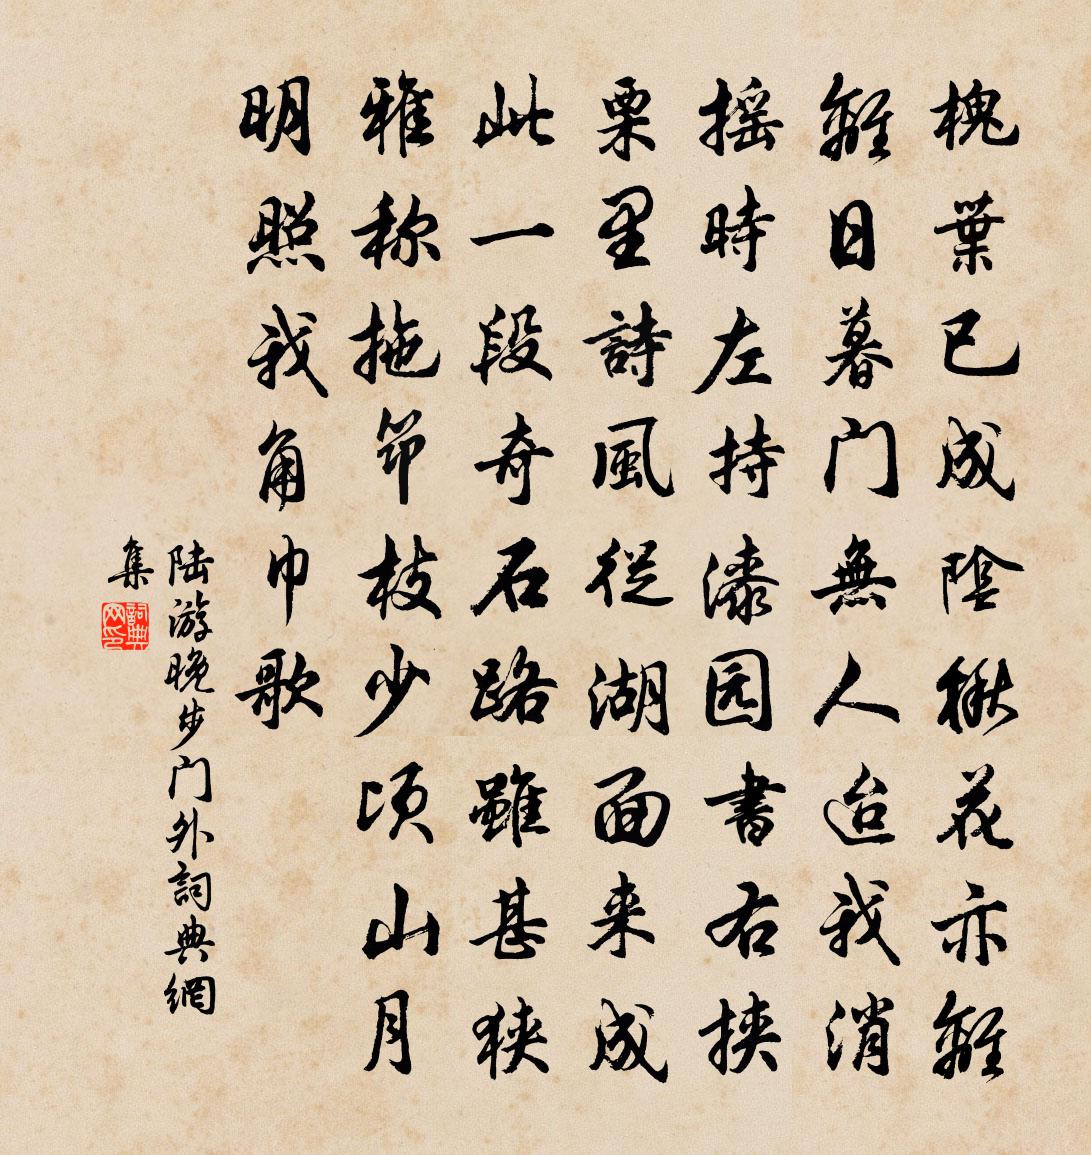 槐葉已成陰楸花亦離
離日暮门無人迨我消
摇時左持漆园書右挟
栗里詩風從湖面来成
此一段奇石路雖甚狭
雅称拖筇枝少顷山月
明照我角巾歌
陆游晚步门外詞典網
集
詞典网印